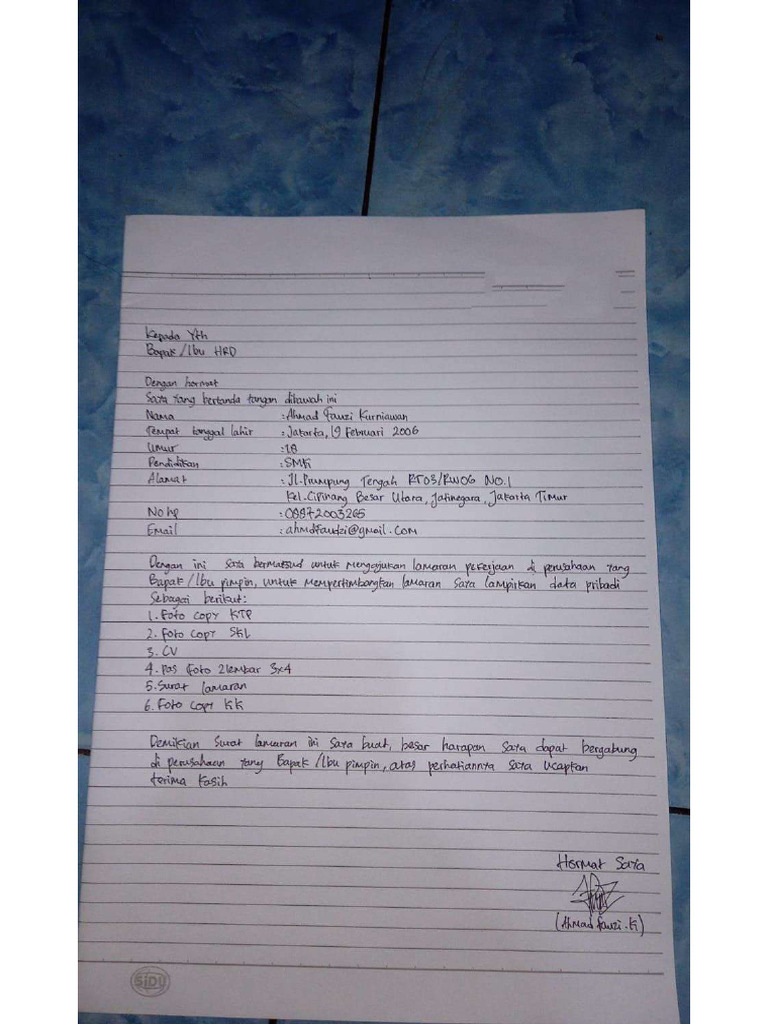 Kepada Yth
Bapak/Ibu HRD
Dengan hormat
Saya yang bertanda tangan dibawah ini
Nama : Ahmad Fauzi Kurniawan
Tempat tanggal lahir : Jakarta, 19 Februari 2006
Umur : 18
Pendidikan : SMK
Alamat : Jl. Prumpung Tengah RT03/RW06 NO.1
Kel. Cipinang Besar Utara, Jatinegara, Jakarta Timur
No hp : 08872003265
Email : ahmdfaudzi@gmail.com
Dengan ini saya bermaksud untuk mengajukan lamaran pekerjaan di perusahaan yang
Bapak/Ibu pimpin, untuk mempertimbangkan lamaran saya lampirkan data pribadi
Sebagai berikut:
1. Foto copy KTP
2. Foto copy SKL
3. CV
4. Pas foto 2 lembar 3x4
5. Surat lamaran
6. Foto copy KK
Demikian surat lamaran ini saya buat, besar harapan saya dapat bergabung
di perusahaan yang Bapak/Ibu pimpin, atas perhatiannya saya ucapkan
terima kasih
Hormat saya
(Ahmad Fauzi.K)
SiDU